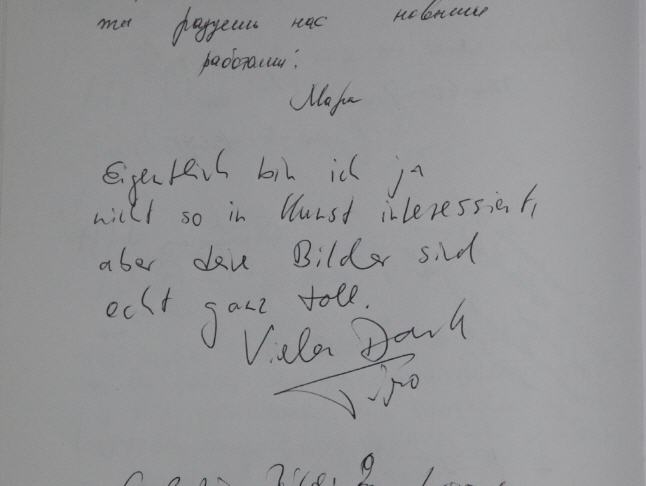 ты радуешь нас новыми
работами!
Мара
Eigentlich bin ich ja
nicht so in Kunst interessiert,
aber deine Bilder sind
echt ganz toll.
Vielen Dank